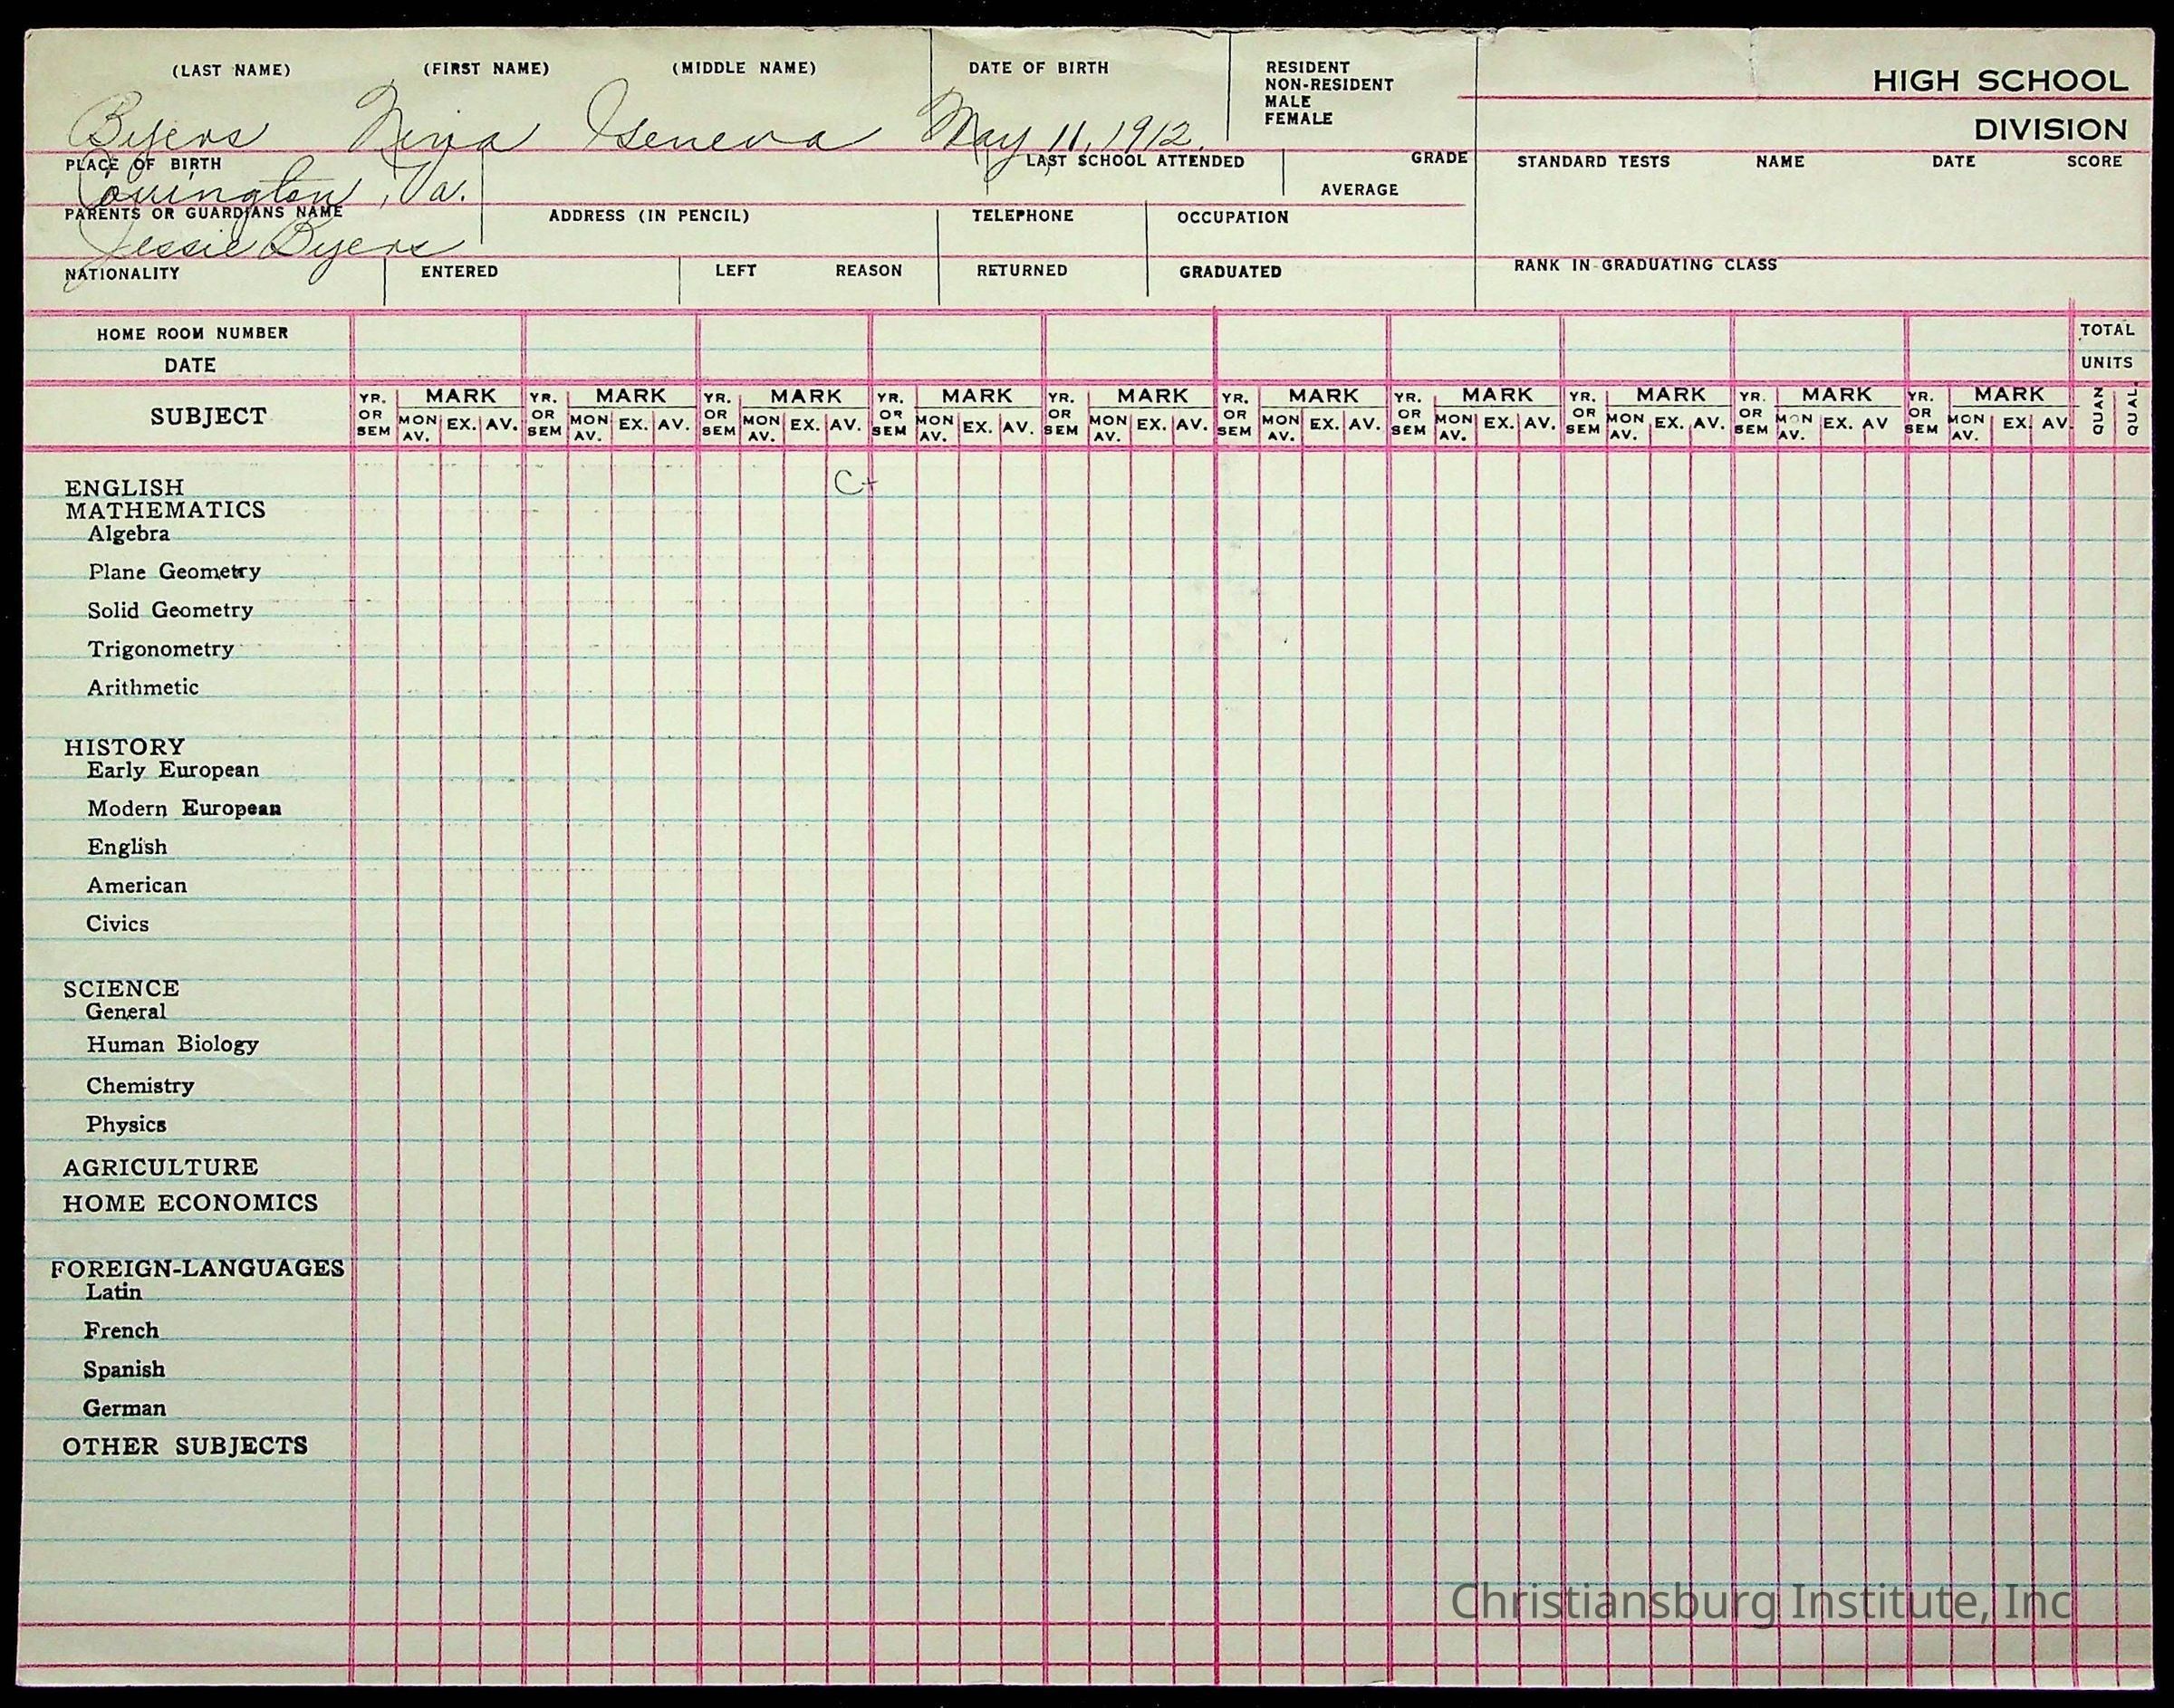 (LAST NAME) (FIRST NAME) (MIDDLE NAME) DATE OF BIRTH RESIDENT
NON-RESIDENT
MALE
FEMALE
HIGH SCHOOL
DIVISION
Byers Nina Geneva May 11, 1912.
PLACE OF BIRTH LAST SCHOOL ATTENDED GRADE STANDARD TESTS NAME DATE SCORE
Covington, Va. AVERAGE
PARENTS OR GUARDIANS NAME ADDRESS (IN PENCIL) TELEPHONE OCCUPATION
Jessie Byers
NATIONALITY ENTERED LEFT REASON RETURNED GRADUATED RANK IN GRADUATING CLASS
HOME ROOM NUMBER TOTAL
DATE UNITS
SUBJECT YR. OR SEM MARK MON AV. EX. AV. YR. OR SEM MARK MON AV. EX. AV. YR. OR SEM MARK MON AV. EX. AV. YR. OR SEM MARK MON AV. EX. AV. YR. OR SEM MARK MON AV. EX. AV. YR. OR SEM MARK MON AV. EX. AV. YR. OR SEM MARK MON AV. EX. AV. YR. OR SEM MARK MON AV. EX. AV. YR. OR SEM MARK MON AV. EX. AV YR. OR SEM MARK MON AV. EX. AV. QUAN QUAL.
ENGLISH C+
MATHEMATICS
Algebra
Plane Geometry
Solid Geometry
Trigonometry
Arithmetic
HISTORY
Early European
Modern European
English
American
Civics
SCIENCE
General
Human Biology
Chemistry
Physics
AGRICULTURE
HOME ECONOMICS
FOREIGN-LANGUAGES
Latin
French
Spanish
German
OTHER SUBJECTS
Christiansburg Institute, Inc